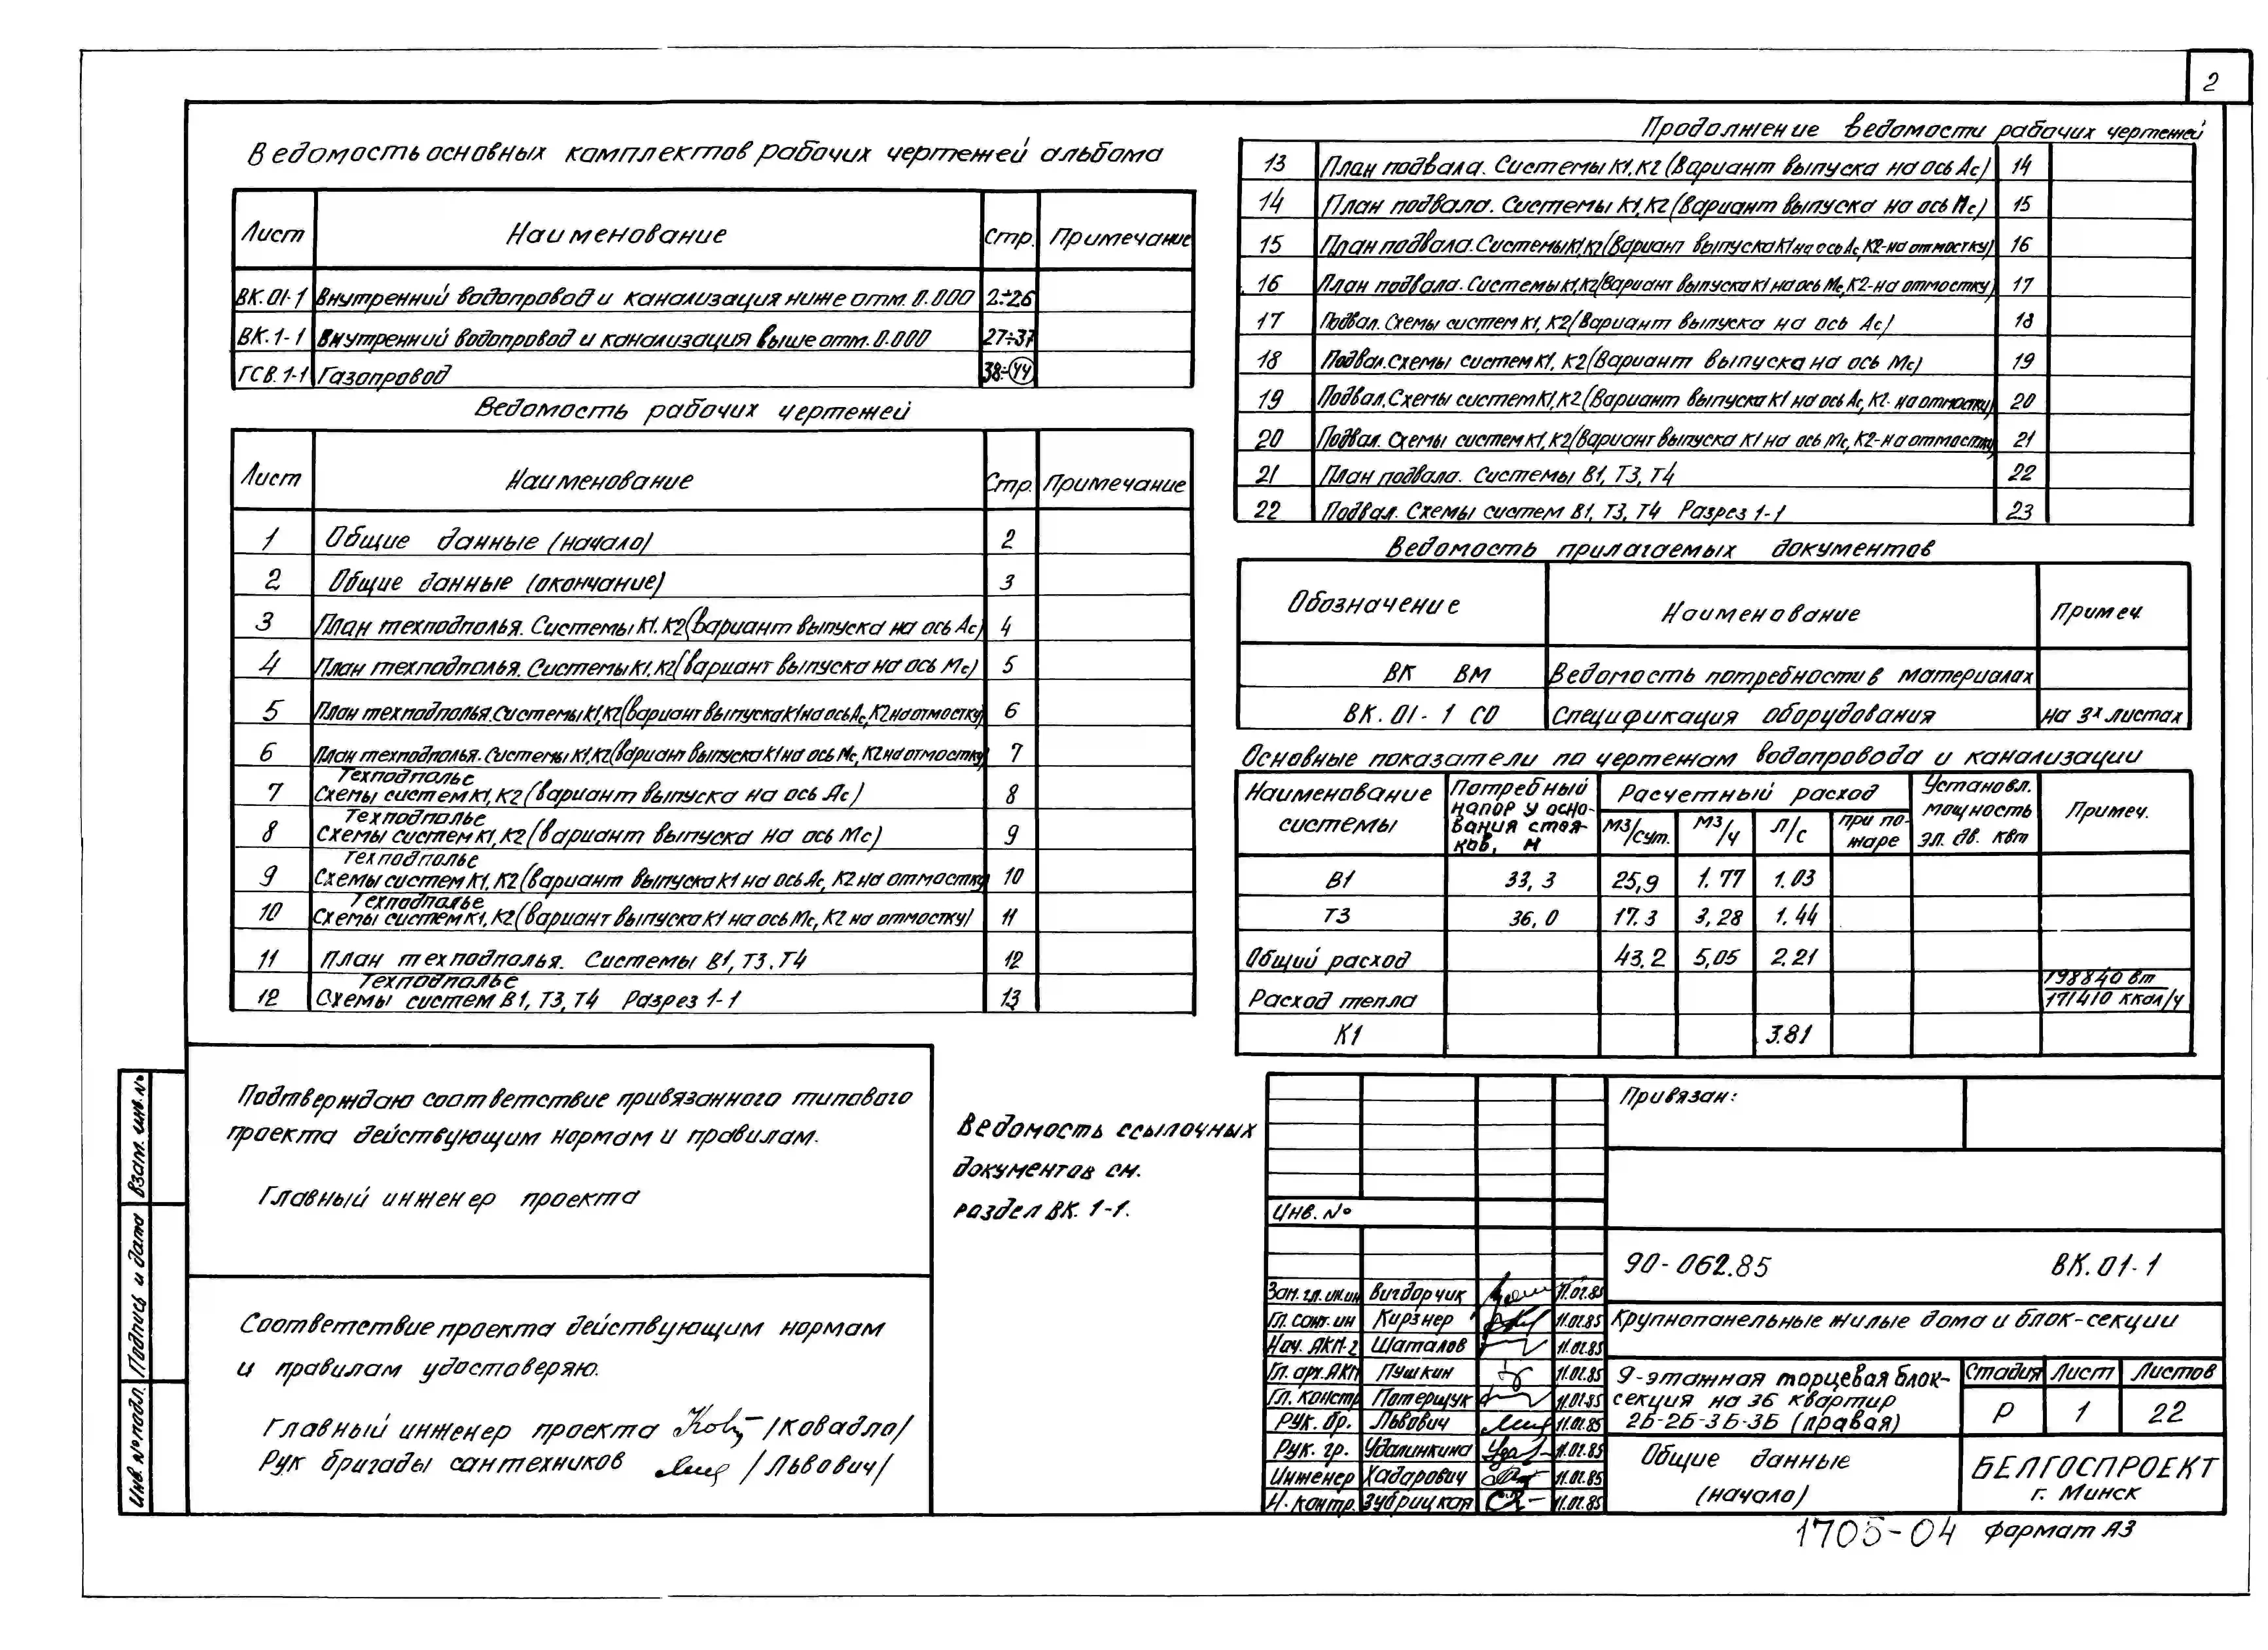 2
Ведомость основных комплектов рабочих чертежей альбома
Лист Наименование Стр. Примечание
ВК.01-1 Внутренний водопровод и канализация ниже отм. 0.000 2÷26
ВК.1-1 Внутренний водопровод и канализация выше отм. 0.000 27÷37
ГСВ.1-1 Газопровод 38÷44
Ведомость рабочих чертежей
Лист Наименование Стр. Примечание
1 Общие данные (начало) 2
2 Общие данные (окончание) 3
3 План техподполья. Системы К1.К2 (вариант выпуска на ось Ас) 4
4 План техподполья. Системы К1,К2 (вариант выпуска на ось Мс) 5
5 План техподполья. Системы К1,К2 (вариант выпуска К1 на ось Ас, К2 на отмостку) 6
6 План техподполья. Системы К1,К2 (вариант выпуска К1 на ось Мс, К2 на отмостку) 7
Техподполье
7 Схемы систем К1,К2 (вариант выпуска на ось Ас) 8
Техподполье
8 Схемы систем К1,К2 (вариант выпуска на ось Мс) 9
Техподполье
9 Схемы систем К1,К2 (вариант выпуска К1 на ось Ас, К2 на отмостку) 10
Техподполье
10 Схемы систем К1,К2 (вариант выпуска К1 на ось Мс, К2 на отмостку) 11
11 План техподполья. Системы В1, Т3, Т4 12
Техподполье
12 Схемы систем В1, Т3, Т4 Разрез 1-1 13
Продолжение ведомости рабочих чертежей
13 План подвала. Системы К1,К2 (Вариант выпуска на ось Ас) 14
14 План подвала. Системы К1,К2 (Вариант выпуска на ось Мс) 15
15 План подвала. Системы К1,К2 (Вариант выпуска К1 на ось Ас, К2-на отмостку) 16
16 План подвала. Системы К1,К2 (Вариант выпуска К1 на ось Мс, К2-на отмостку) 17
17 Подвал. Схемы систем К1, К2 (Вариант выпуска на ось Ас) 18
18 Подвал. Схемы систем К1, К2 (Вариант выпуска на ось Мс) 19
19 Подвал. Схемы систем К1, К2 (Вариант выпуска К1 на ось Ас, К2- на отмостку) 20
20 Подвал. Схемы систем К1, К2 (Вариант выпуска К1 на ось Мс, К2-на отмостку) 21
21 План подвала. Системы В1, Т3, Т4 22
22 Подвал. Схемы систем В1, Т3, Т4 Разрез 1-1 23
Ведомость прилагаемых документов
Обозначение Наименование Примеч.
ВК ВМ Ведомость потребности в материалах
ВК.01-1 СО Спецификация оборудования на 3х листах
Основные показатели по чертежам водопровода и канализации
Наименование системы Потребный напор у основания стояков, м Расчетный расход Установл. мощность эл. дв. квт Примеч.
м3/сут. м3/ч л/с при пожаре
В1 33,3 25,9 1.77 1.03
Т3 36,0 17.3 3,28 1.44
Общий расход 43.2 5,05 2.21
Расход тепла 198840 вт
171410 ккал/ч
К1 3.81
Подтверждаю соответствие привязанного типового
проекта действующим нормам и правилам.
Главный инженер проекта
Соответствие проекта действующим нормам
и правилам удостоверяю.
Главный инженер проекта /Ковадло/
Рук бригады сантехников /Львович/
Ведомость ссылочных
документов см.
раздел ВК.1-1.
Взам. инв.№
Подпись и дата
Инв.№ подл.
Привязан:
Инв.№
90-062.85 ВК.01-1
Зам. гл. инж. Вигдорчик 11.01.85
Гл. сант. ин Кирзнер 11.01.85
Нач. АКМ-2 Шаталов 11.01.85
Гл. арх. АКМ Пушкин 11.01.85
Гл. констр Потерщук 11.01.85
Рук. бр. Львович 11.01.85
Рук. гр. Удалинкина 11.01.85
Инженер Хадарович 11.01.85
Н. контр. Зубрицкая 11.01.85
Крупнопанельные жилые дома и блок-секции
9-этажная торцевая блок-
секция на 36 квартир
2Б-2Б-3Б-3Б (правая)
Стадия Лист Листов
Р 1 22
Общие данные
(начало)
БЕЛГОСПРОЕКТ
г. Минск
1705-04 формат А3